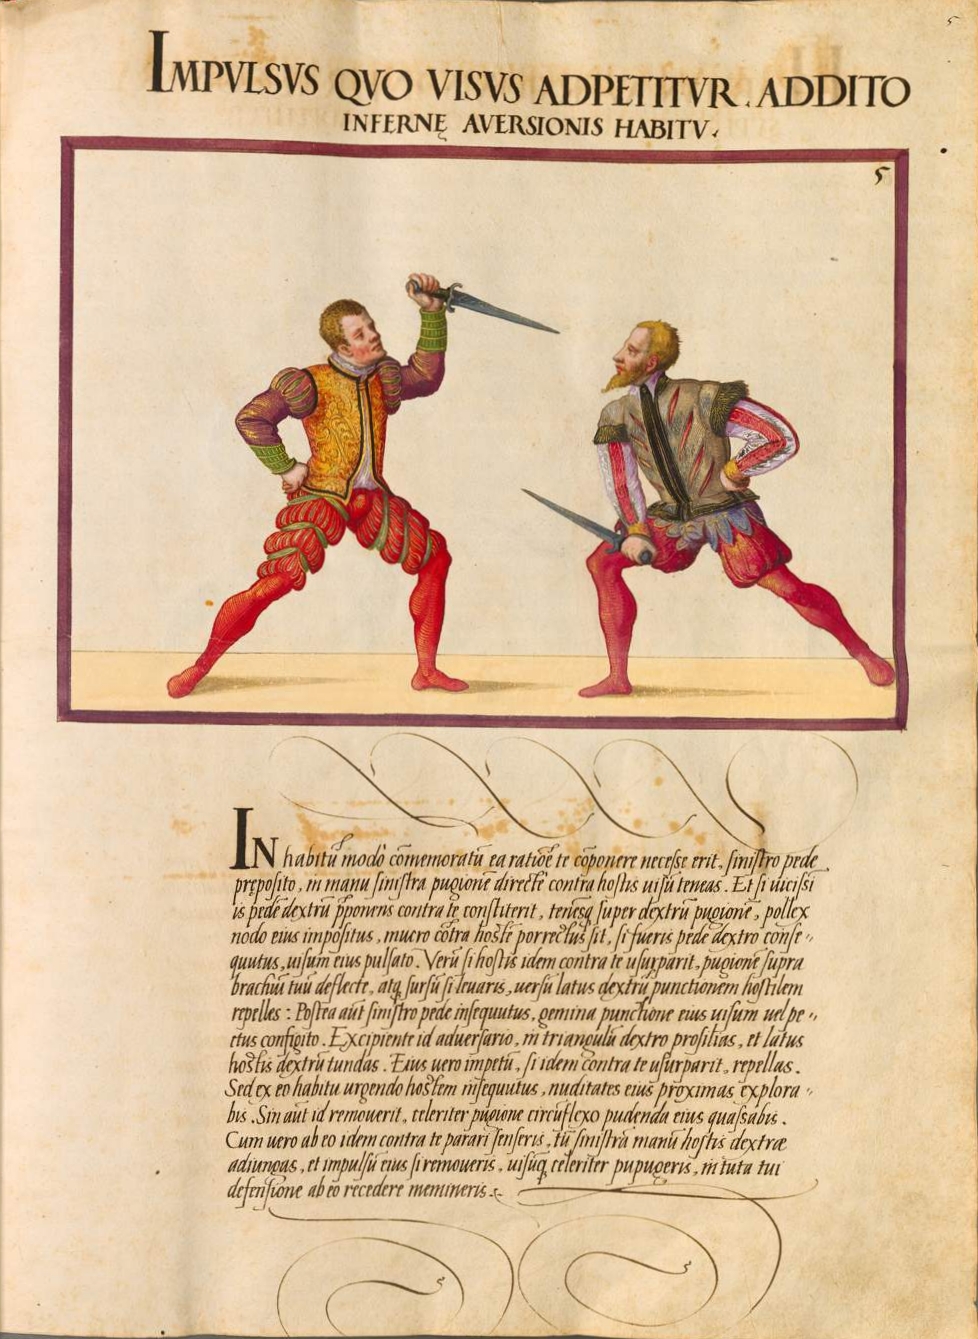 5
IMPVLSVS QVO VISVS ADPETITVR. ADDITO
INFERNĘ AVERSIONIS HABITV.
5
IN habitũ modò cõmemoratũ ea ratiõe te cõponere necesse erit, sinistro pede
pręposito, in manu sinistra pugionẽ directè contra hostis uisũ teneas. Et si uicissi
is pedẽ dextrũ p̃ponens contra te constiterit, tenesq̃ super dextrũ pugionẽ, pollex
nodo eius impositus, mucro cõtra hostẽ porrectus sit, si fueris pede dextro conse
quutus, uisum eius pulsato. Verũ si hostis idem contra te usurparit, pugionẽ supra
brachiũ tuũ deflecte, atq̃ sursũ si leuaris, uersũ latus dextrũ punctionem hostilem
repelles: Postea aũt sinistro pede insequutus, gemina punctione eius uisum uel pe
ctus configito. Excipiente id aduersario, in triangulũ dextro prosilias, et latus
hostis dextrũ tundas. Eius uero impetũ, si idem contra te usurparit, repellas.
Sed ex eo habitu urgendo hostem insequutus, nuditates eius proximas explora
bis. Sin aũt id remouerit, celeriter pugione circũflexo pudenda eius quassabis.
Cum uero ab eo idem contra te parari senseris, tũ sinistrã manũ hostis dextræ
adiungas, et impulsũ eius si remoueris, uisũq̃ celeriter pupugeris, in tuta tui
defensione ab eo recedere memineris.